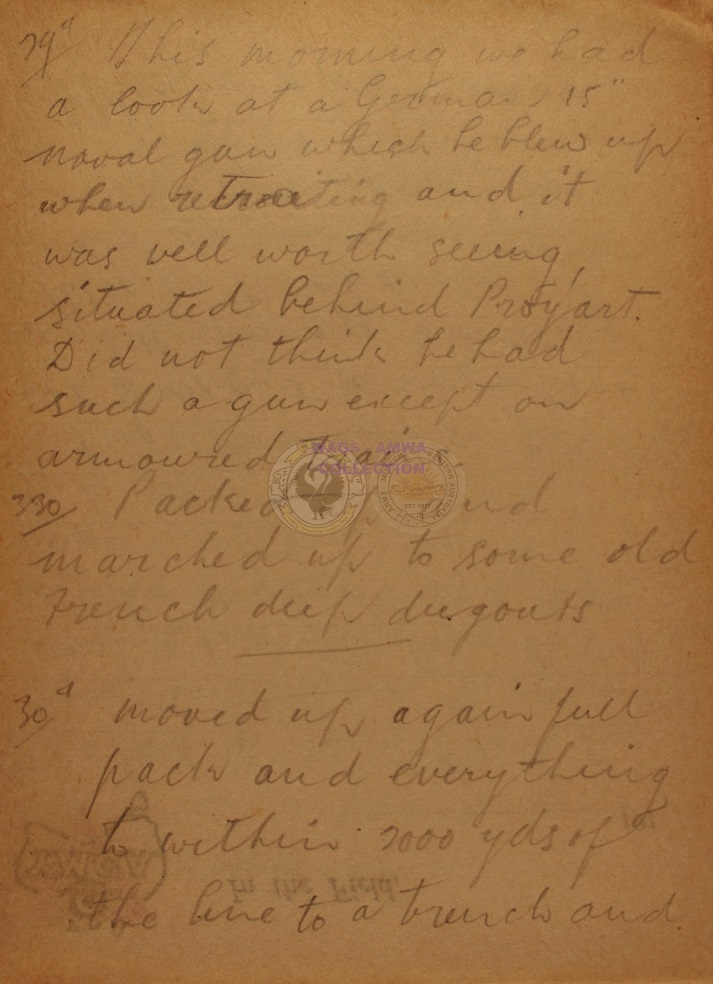 29th This morning we had
a look at a German 15"
naval gun which he blew up
when retreating and it
was well worth seeing,
situated behind Proyart.
Did not think he had
such a gun except on
armoured train.
330 Packed up and
marched up to some old
French deep dugouts
30th moved up again full
pack and everything
to within 2000 yds of
the line to a trench and
In the Field.
WAGS AMWA
COLLECTION